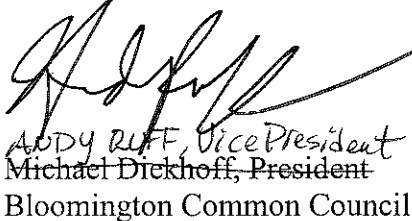 ANDY RUFF, Vice President
Michael Diekhoff, President
Bloomington Common Council